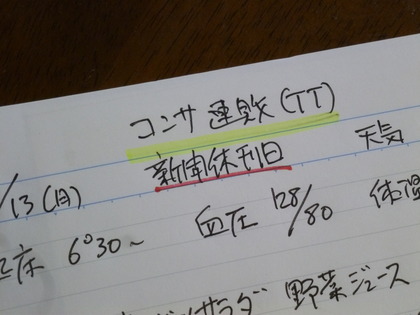 コンサ連敗(TT)
新聞休刊日 天気
/13(月)
起床 6°30~ 血圧 128/80 体温
サラダ 野菜ジュース